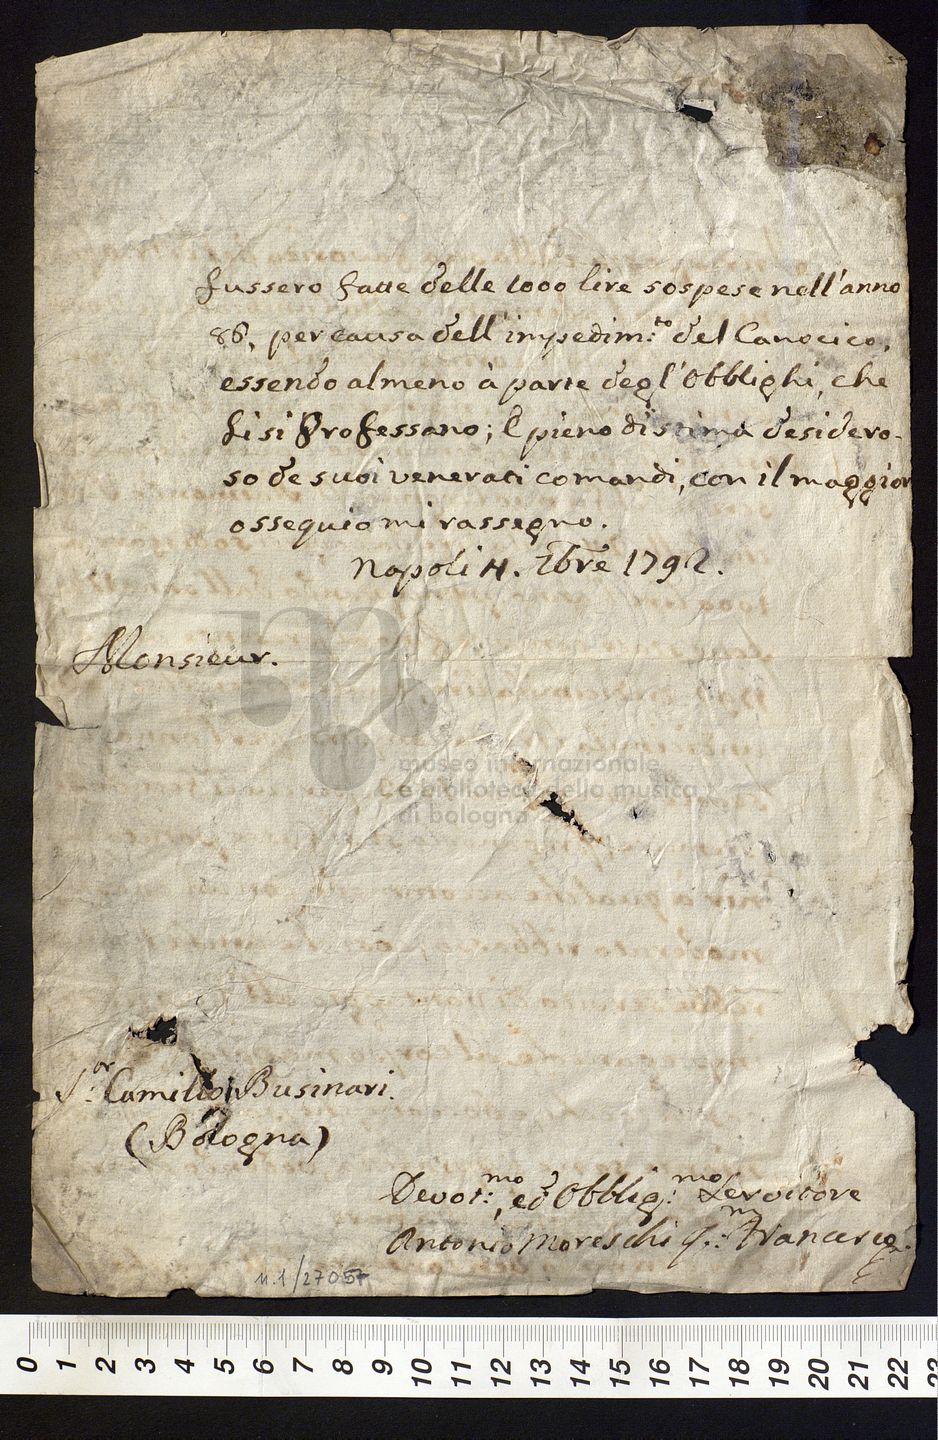 fussero fatte delle 1000 lire sospese nell'anno
86, per causa dell'impedim:to del Canocico,
essendo almeno à parte degl'Obblighi, che
li si Professano; E pieno di stima desidero-
so de suoi venerati comandi, con il maggior
ossequio mi rassegno.
Napoli 4. Xbre 1792.
Monsieur.
museo internazionale
e biblioteca della musica
di bologna
S:or Camillo Businari.
(Bologna)
Devot:mo, ed Obblig:mo Servitore
Antonio Moreschi q:m Francesco
n.1/27057
0 1 2 3 4 5 6 7 8 9 10 11 12 13 14 15 16 17 18 19 20 21 22 23